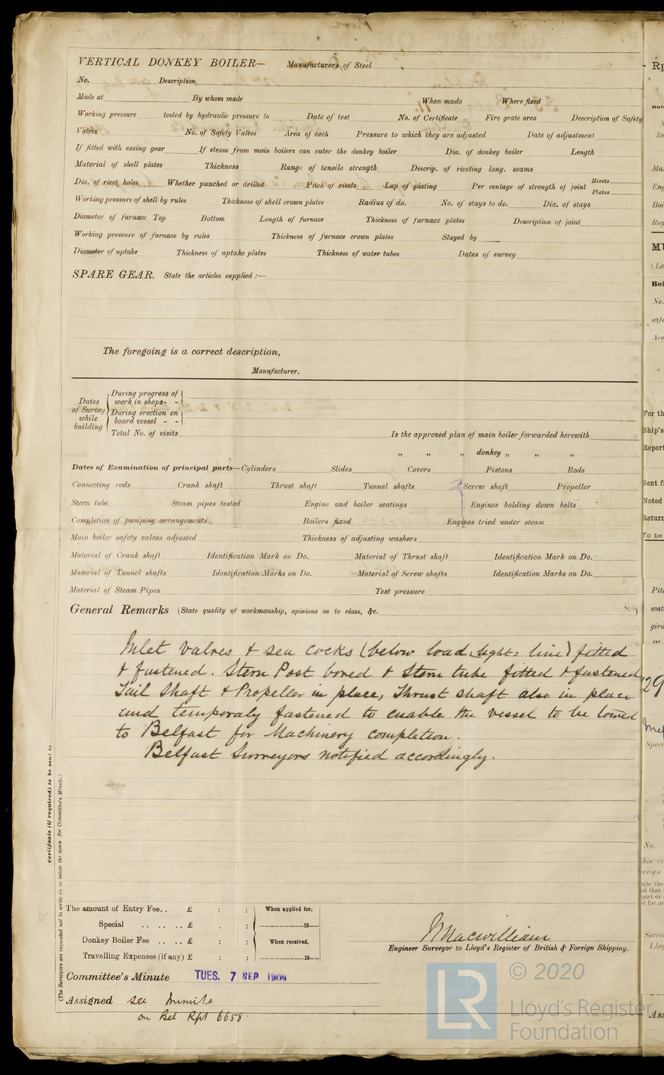 VERTICAL DONKEY BOILER— Manufacturers of Steel
No. Description
Made at By whom made When made Where fixed
Working pressure tested by hydraulic pressure to Date of test No. of Certificate Fire grate area Description of Safety
Valves No. of Safety Valves Area of each Pressure to which they are adjusted Date of adjustment
If fitted with easing gear If steam from main boilers can enter the donkey boiler Dia. of donkey boiler Length
Material of shell plates Thickness Range of tensile strength Descrip. of riveting long. seams
Dia. of rivet holes Whether punched or drilled Pitch of rivets Lap of plating Per centage of strength of joint Rivets Plates
Working pressure of shell by rules Thickness of shell crown plates Radius of do. No. of stays to do. Dia. of stays
Diameter of furnace Top Bottom Length of furnace Thickness of furnace plates Description of joint
Working pressure of furnace by rules Thickness of furnace crown plates Stayed by
Diameter of uptake Thickness of uptake plates Thickness of water tubes Dates of survey
SPARE GEAR. State the articles supplied :—
The foregoing is a correct description,
Manufacturer.
Dates of Survey while building
During progress of work in shops- -
During erection on board vessel - -
Total No. of visits
Is the approved plan of main boiler forwarded herewith
„ „ „ donkey „ „ „
Dates of Examination of principal parts—Cylinders Slides Covers Pistons Rods
Connecting rods Crank shaft Thrust shaft Tunnel shafts Screw shaft Propeller
Stern tube Steam pipes tested Engine and boiler seatings Engines holding down bolts
Completion of pumping arrangements Boilers fixed Engines tried under steam
Main boiler safety valves adjusted Thickness of adjusting washers
Material of Crank shaft Identification Mark on Do. Material of Thrust shaft Identification Mark on Do.
Material of Tunnel shafts Identification Marks on Do. Material of Screw shafts Identification Marks on Do.
Material of Steam Pipes Test pressure
General Remarks (State quality of workmanship, opinions as to class, &c.
Inlet valves & sea cocks (below load light line) fitted
& fastened. Stern Post bored & Stern tube fitted & fastened
Tail Shaft & Propeller in place, Thrust shaft also in place
and temporaly fastened to enable the vessel to be towed
to Belfast for Machinery completion.
Belfast Surveyors notified accordingly.
Certificate (if required) to be sent to
(The Surveyors are requested not to write on or below the space for Committee's Minute.)
The amount of Entry Fee.. £ : : When applied for.
Special .. .. .. £ : : 19
Donkey Boiler Fee .. .. £ : : When received.
Travelling Expenses (if any) £ : : 19
J Macwilliam
Engineer Surveyor to Lloyd's Register of British & Foreign Shipping.
Committee's Minute TUES. 7 SEP 1909
Assigned see minute
on Bel Rpt 6658
LR © 2020
Lloyd's Register
Foundation